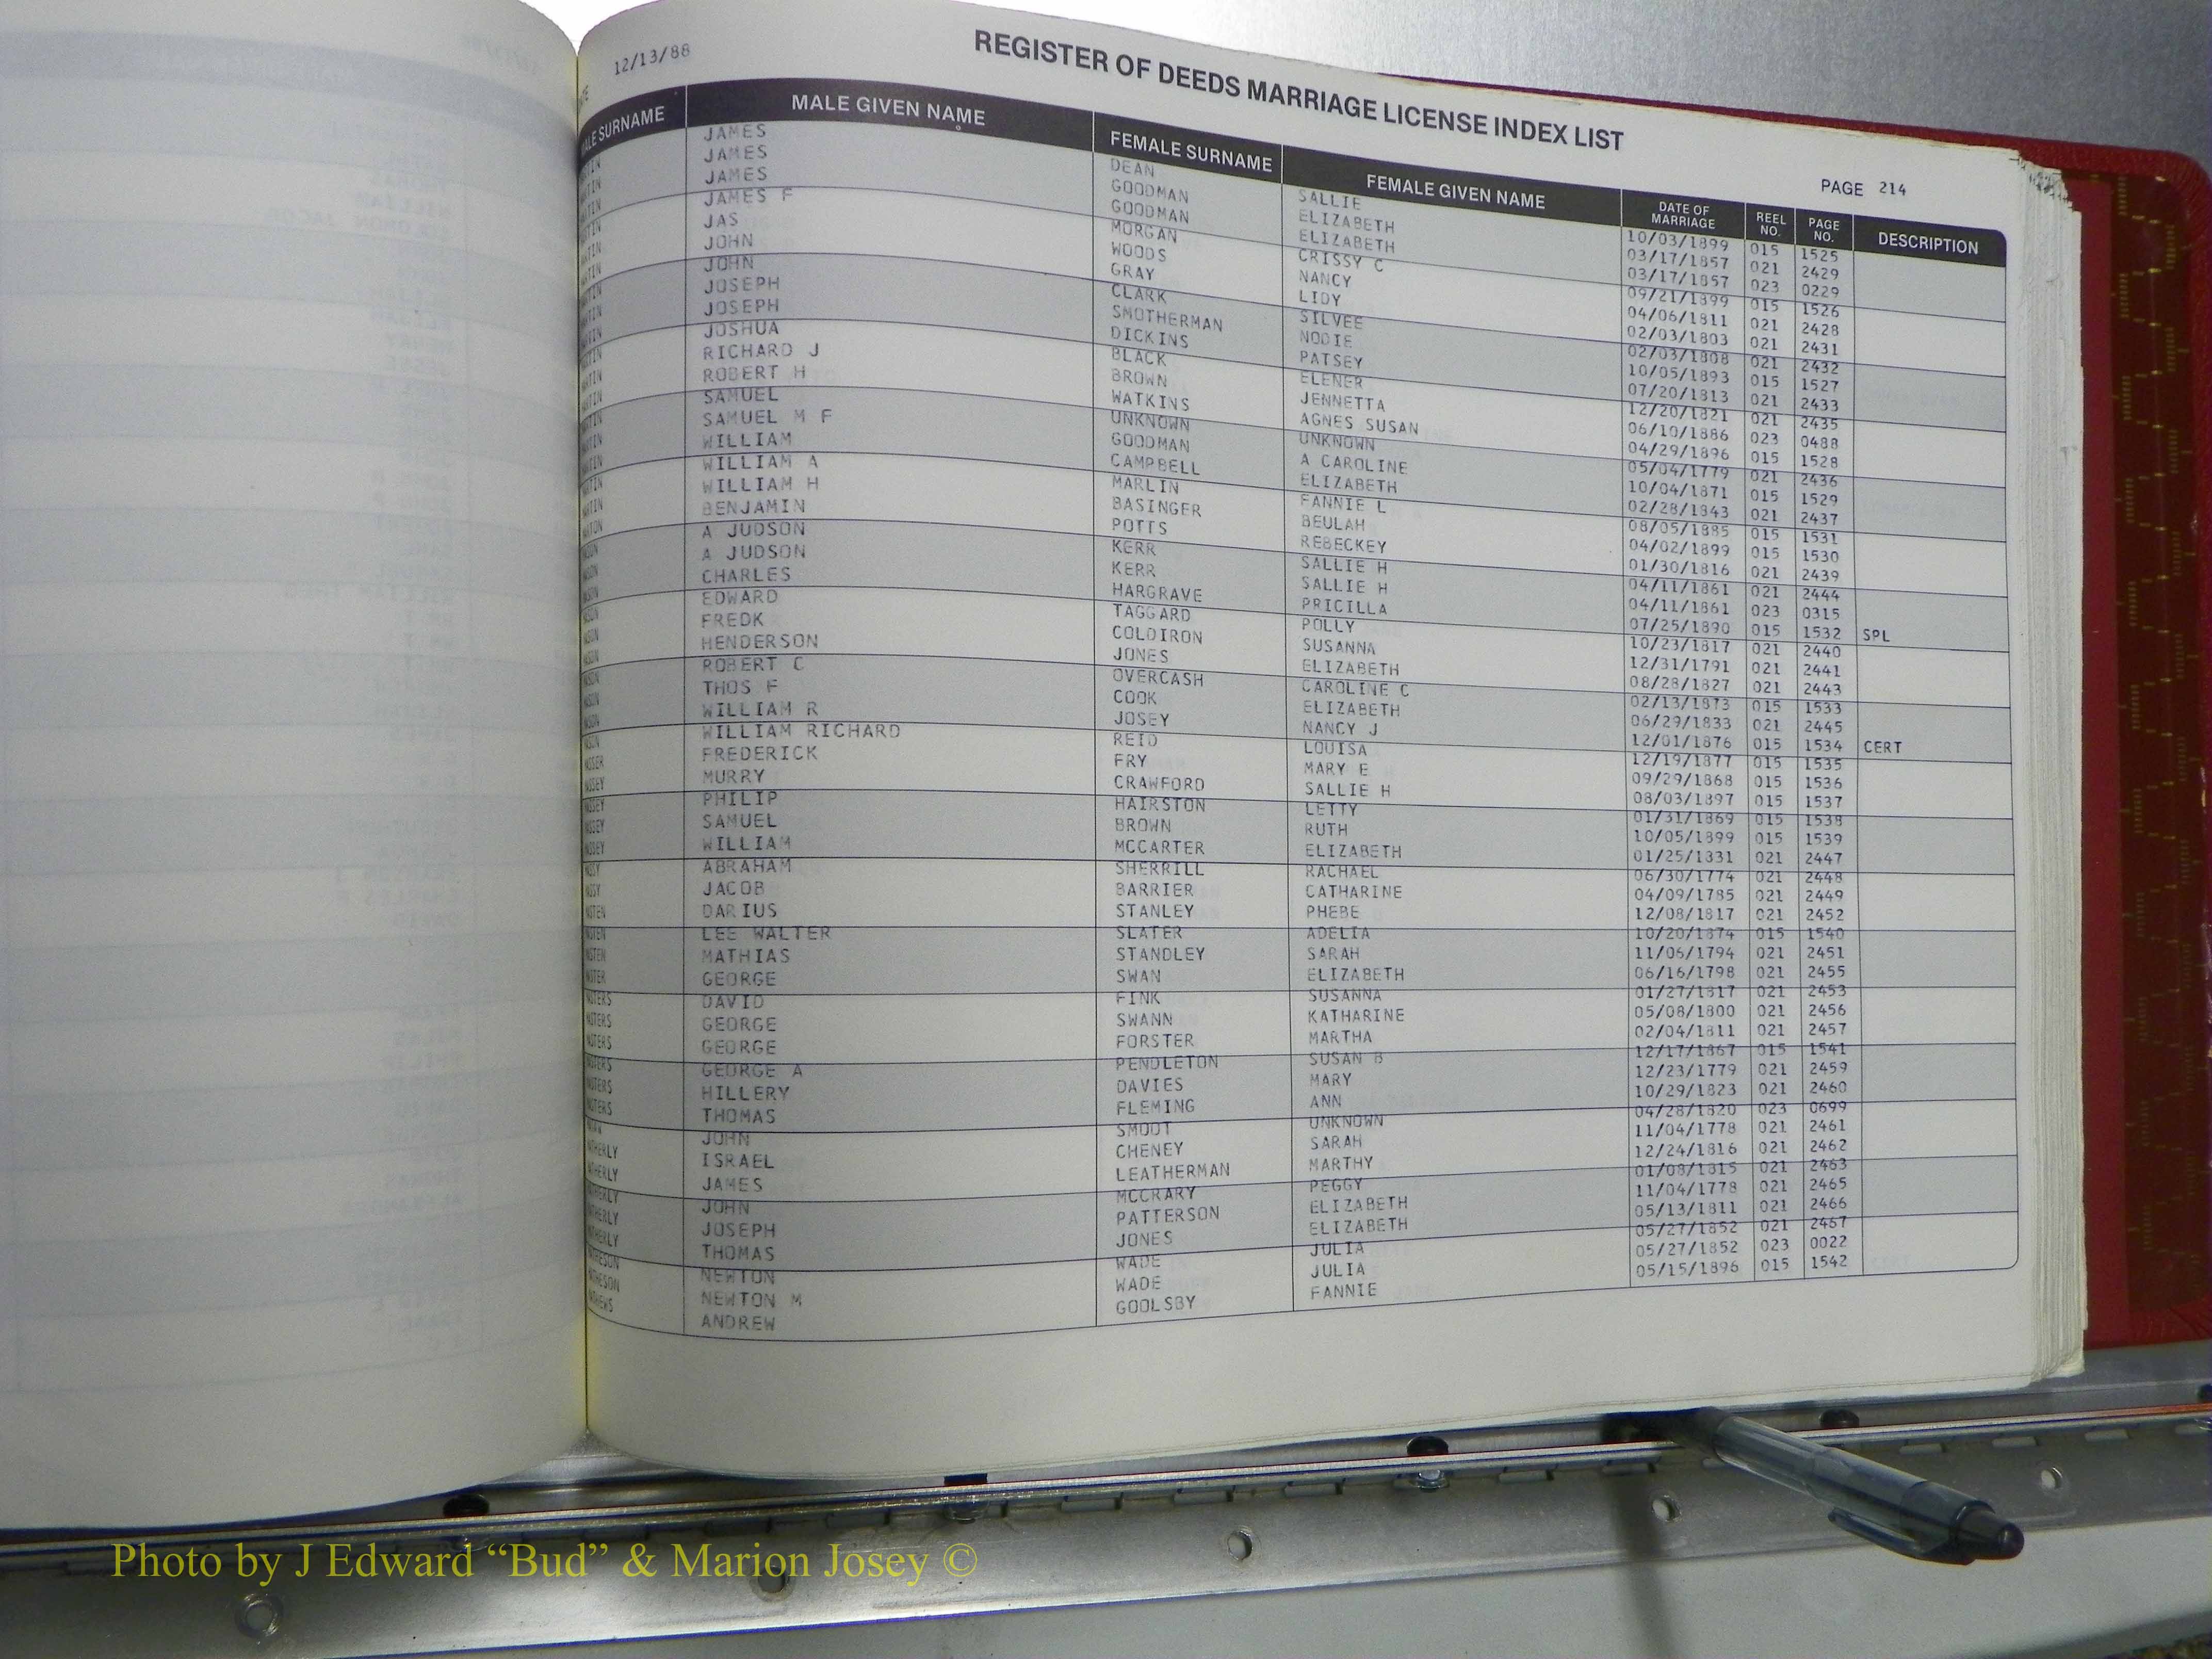 12/13/88
REGISTER OF DEEDS MARRIAGE LICENSE INDEX LIST
PAGE 214
SURNAME MALE GIVEN NAME FEMALE SURNAME FEMALE GIVEN NAME DATE OF MARRIAGE REEL NO. PAGE NO. DESCRIPTION
JAMES DEAN SALLIE 10/03/1899 015 1525
JAMES GOODMAN ELIZABETH 03/17/1857 021 2429
JAMES GOODMAN ELIZABETH 03/17/1857 023 0229
JAMES F MORGAN CRISSY C 09/21/1899 015 1526
JAS WOODS NANCY 04/06/1811 021 2428
JOHN GRAY LIDY 02/03/1803 021 2431
JOHN CLARK SILVEE 02/03/1808 021 2432
JOSEPH SMOTHERMAN NODIE 10/05/1893 015 1527
JOSEPH DICKINS PATSEY 07/20/1813 021 2433
JOSHUA BLACK ELENER 12/20/1821 021 2435
RICHARD J BROWN JENNETTA 06/10/1886 023 0488
ROBERT H WATKINS AGNES SUSAN 04/29/1896 015 1528
SAMUEL UNKNOWN UNKNOWN 05/04/1779 021 2436
SAMUEL M F GOODMAN A CAROLINE 10/04/1871 015 1529
WILLIAM CAMPBELL ELIZABETH 02/28/1843 021 2437
WILLIAM A MARLIN FANNIE L 08/05/1885 015 1531
WILLIAM H BASINGER BEULAH 04/02/1899 015 1530
BENJAMIN POTTS REBECKEY 01/30/1816 021 2439
A JUDSON KERR SALLIE H 04/11/1861 021 2444
A JUDSON KERR SALLIE H 04/11/1861 023 0315
CHARLES HARGRAVE PRICILLA 07/25/1890 015 1532 SPL
EDWARD TAGGARD POLLY 10/23/1817 021 2440
FREDK COLDIRON SUSANNA 12/31/1791 021 2441
HENDERSON JONES ELIZABETH 08/28/1827 021 2443
ROBERT C OVERCASH CAROLINE C 02/13/1873 015 1533
THOS F COOK ELIZABETH 06/29/1833 021 2445
WILLIAM R JOSEY NANCY J 12/01/1876 015 1534 CERT
WILLIAM RICHARD REID LOUISA 12/19/1877 015 1535
FREDERICK FRY MARY E 09/29/1868 015 1536
MURRY CRAWFORD SALLIE H 08/03/1897 015 1537
PHILIP HAIRSTON LETTY 01/31/1869 015 1538
SAMUEL BROWN RUTH 10/05/1899 015 1539
WILLIAM MCCARTER ELIZABETH 01/25/1831 021 2447
ABRAHAM SHERRILL RACHAEL 06/30/1774 021 2448
JACOB BARRIER CATHARINE 04/09/1785 021 2449
DARIUS STANLEY PHEBE 12/08/1817 021 2452
LEE WALTER SLATER ADELIA 10/20/1874 015 1540
MATHIAS STANDLEY SARAH 11/06/1794 021 2451
GEORGE SWAN ELIZABETH 06/16/1798 021 2455
DAVID FINK SUSANNA 01/27/1817 021 2453
GEORGE SWANN KATHARINE 05/08/1800 021 2456
GEORGE FORSTER MARTHA 02/04/1811 021 2457
GEORGE A PENDLETON SUSAN B 12/17/1867 015 1541
HILLERY DAVIES MARY 12/23/1779 021 2459
THOMAS FLEMING ANN 10/29/1823 021 2460
JOHN SMOOT UNKNOWN 04/28/1820 023 0699
ISRAEL CHENEY SARAH 11/04/1778 021 2461
JAMES LEATHERMAN MARTHY 12/24/1816 021 2462
JOHN MCCRARY PEGGY 01/08/1815 021 2463
JOSEPH PATTERSON ELIZABETH 11/04/1778 021 2465
THOMAS JONES ELIZABETH 05/13/1811 021 2466
NEWTON WADE JULIA 05/27/1852 021 2467
NEWTON M WADE JULIA 05/27/1852 023 0022
ANDREW GOOLSBY FANNIE 05/15/1896 015 1542
Photo by J Edward “Bud” & Marion Josey ©